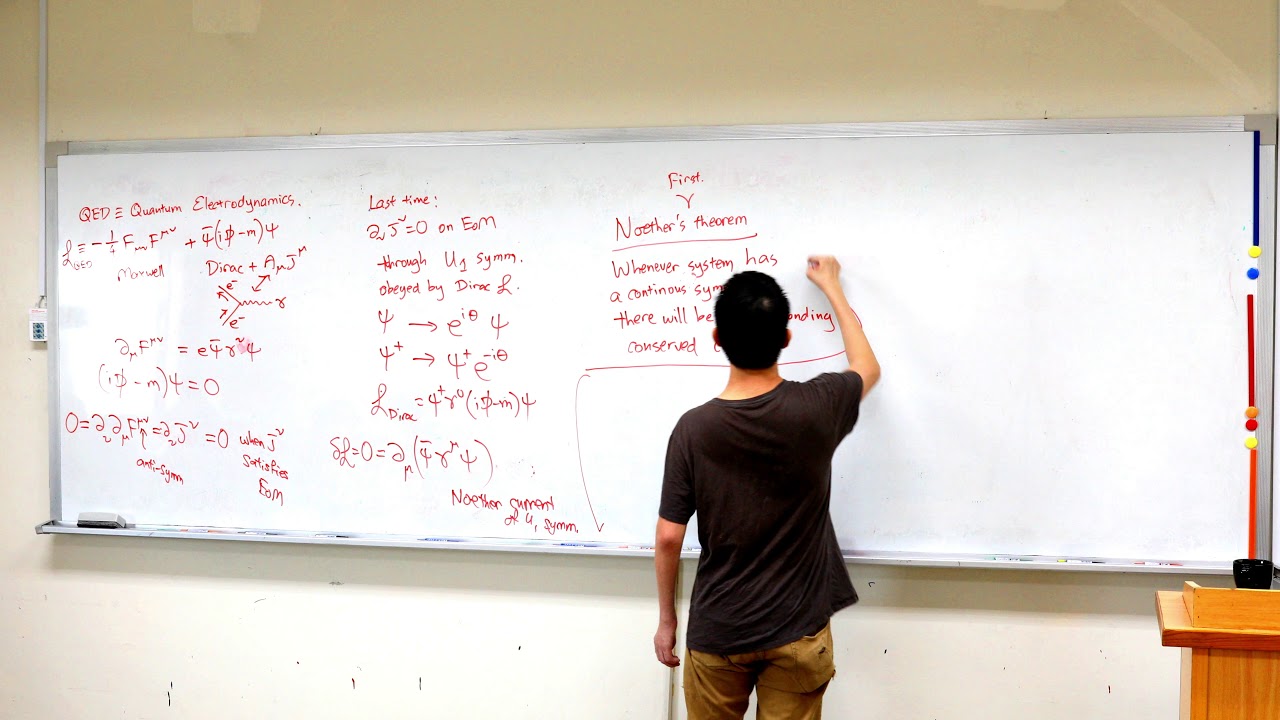 QED ≡ Quantum Electrodynamics.
ℒ_QED ≡ -1/4 F_μν F^μν + ψ̄(i∂̸-m)ψ
Maxwell
Dirac + A_μ J^μ
e⁻
γ
e⁻
∂_μ F^μν = e ψ̄ γ^ν ψ
(i∂̸-m)ψ = 0
0 = ∂_ν ∂_μ F^μν = ∂_ν J^ν = 0 when J^ν
anti-symm
satisfies
EoM
Last time:
∂_ν J^ν = 0 on EoM
through U₁ symm.
obeyed by Dirac ℒ.
ψ → e^{iθ} ψ
ψ⁺ → ψ⁺ e^{-iθ}
ℒ_Dirac = ψ⁺γ⁰(i∂̸-m)ψ
δℒ = 0 = ∂_μ(ψ̄ γ^μ ψ)
Noether current
of U₁ symm.
First.
Noether's theorem
Whenever system has
a continous sym
there will be onding
conserved